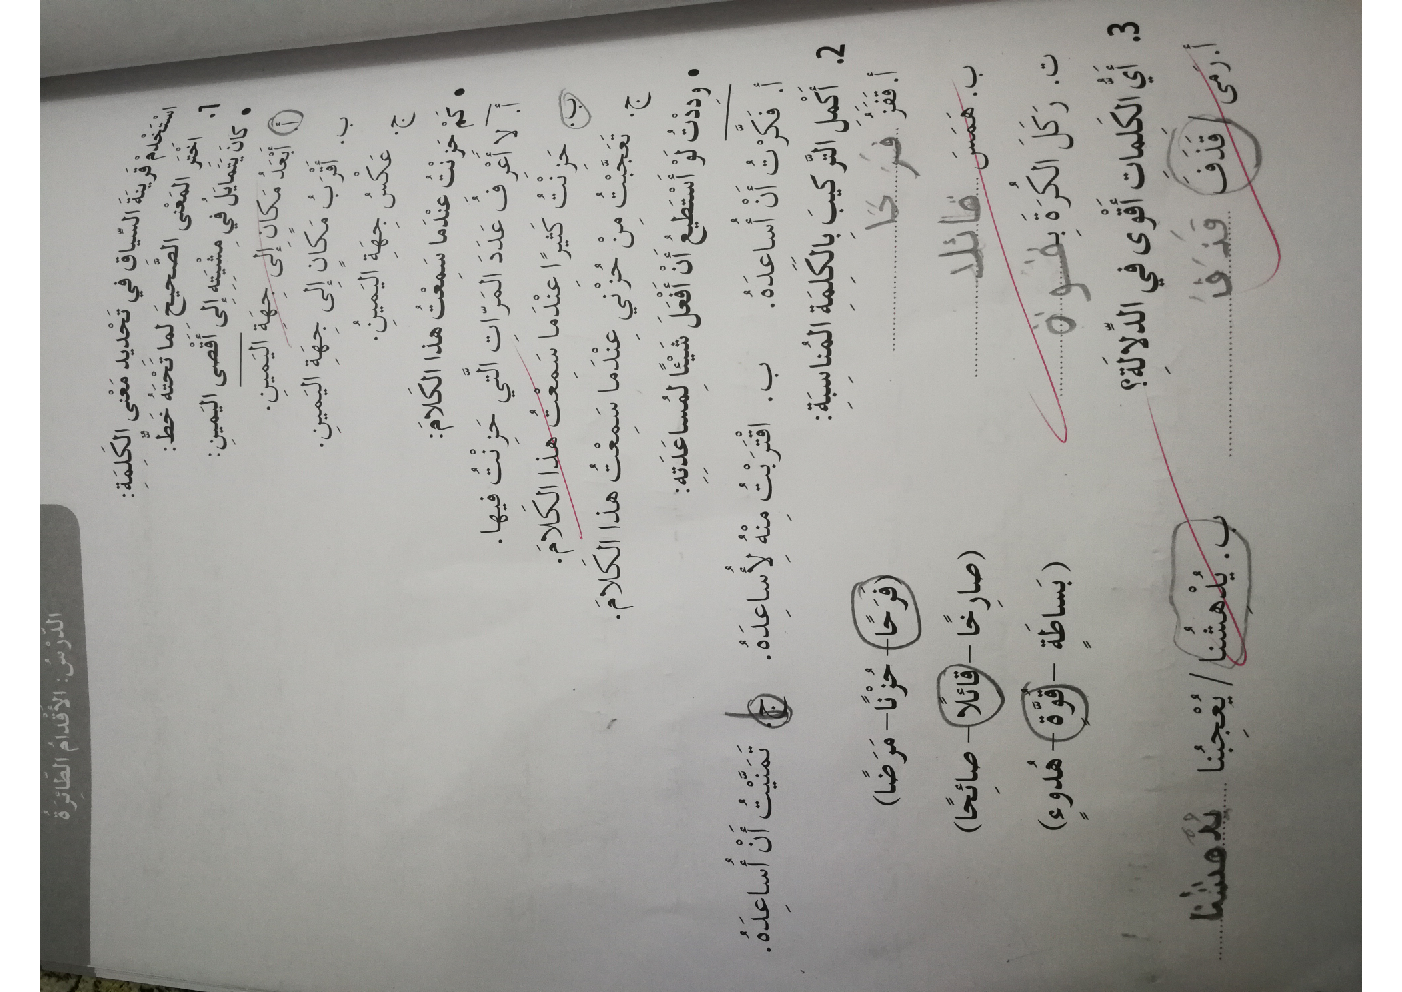 الدَّرْسُ: الأَقْدامُ الطَّائِرَةُ
اسْتَخْدِمْ قَرينَةَ السِّياقِ في تَحْديدِ مَعْنى الكَلِمَةِ:
1. اخْتَرِ المَعْنى الصَّحيحَ لِما تَحْتَهُ خَطٌّ:
• كانَ يَتَمايَلُ في مِشْيَتِهِ إِلى أَقْصى اليَمينِ:
أ. أَبْعَدُ مَكانٍ إِلى جِهَةِ اليَمينِ.
ب. أَقْرَبُ مَكانٍ إِلى جِهَةِ اليَمينِ.
ج. عَكْسُ جِهَةِ اليَمينُ.
• كَمْ حَزِنْتُ عِنْدَما سَمِعْتُ هذا الكَلامَ:
أ. لا أَعْرِفُ عَدَدَ المَرّاتِ الَّتي حَزِنْتُ فيها.
ب. حَزِنْتُ كَثيرًا عِنْدَما سَمِعْتُ هذا الكَلامَ.
ج. تَعَجَّبْتُ مِنْ حُزْني عِنْدَما سَمِعْتُ هذا الكَلامَ.
• وَدِدْتُ لَوْ أَسْتَطيعُ أَنْ أَفْعَلَ شَيْئًا لِمُساعَدَتِهِ:
أ. فَكَّرْتُ أَنْ أُساعِدَهُ. ب. اقْتَرَبْتُ مِنْهُ لِأُساعِدَهُ. ج. تَمَنَّيْتُ أَنْ أُساعِدَهُ.
2. أَكْمِلِ التَّرْكيبَ بِالكَلِمَةِ المُناسِبَةِ:
أ. قَفَزَ فَرَحًا (فَرَحًا – حُزْنًا – مَرَضًا)
ب. هَمَسَ قائلا (صارِخًا – قائِلًا – صائِحًا)
ت. رَكَلَ الكُرَةَ بِقُوة (بَساطَةٍ – قُوَّةٍ – هُدوءٍ)
3. أَيُّ الكَلِماتِ أَقْوى في الدِّلالَةِ؟
أ. رَمى / قَذَفَ قَذَفَ ب. يُدْهِشُنا / يُعْجِبُنا يُدْهشُنا